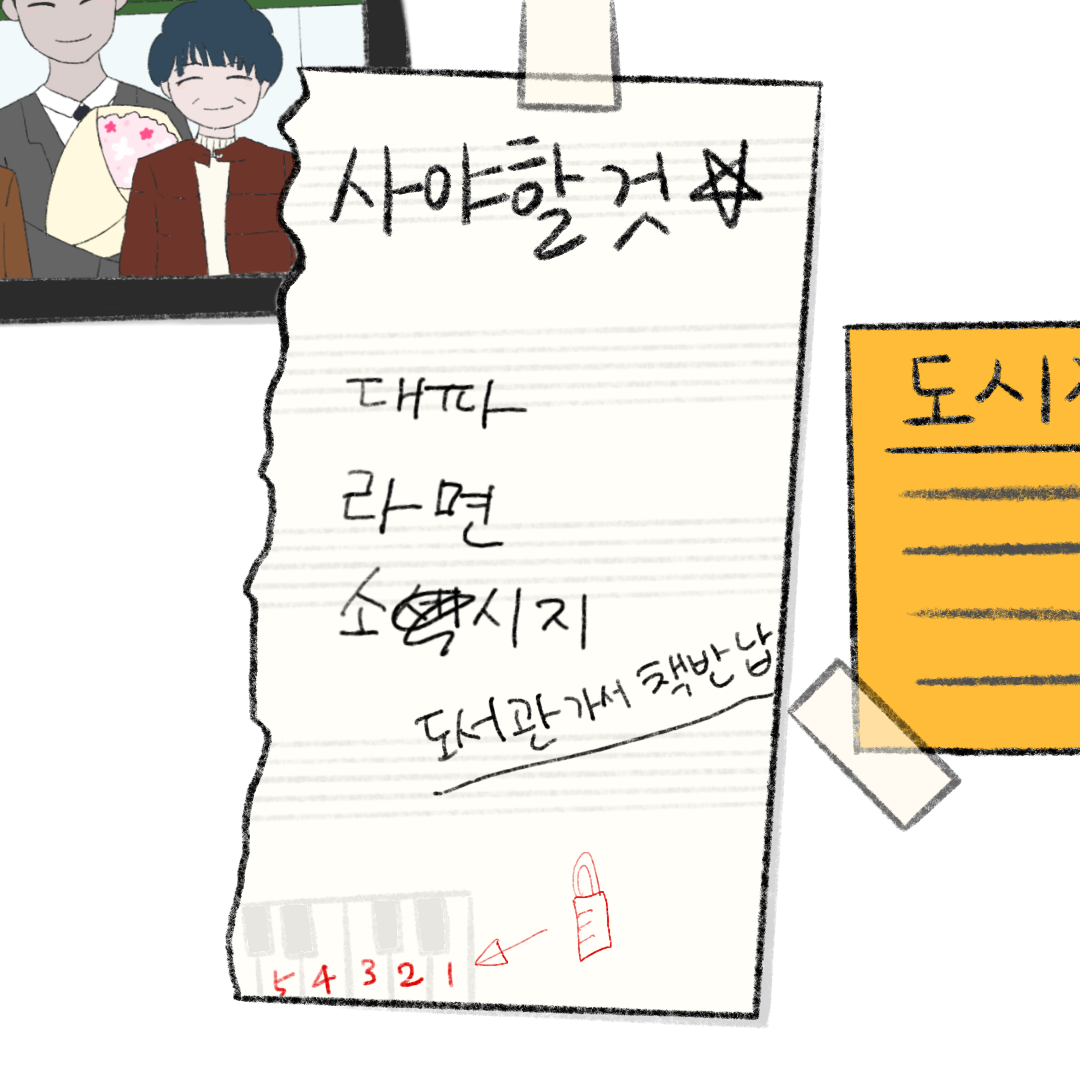 사야할것☆
대파
라면
소시지
도서관가서 책반납
5 4 3 2 1
도시